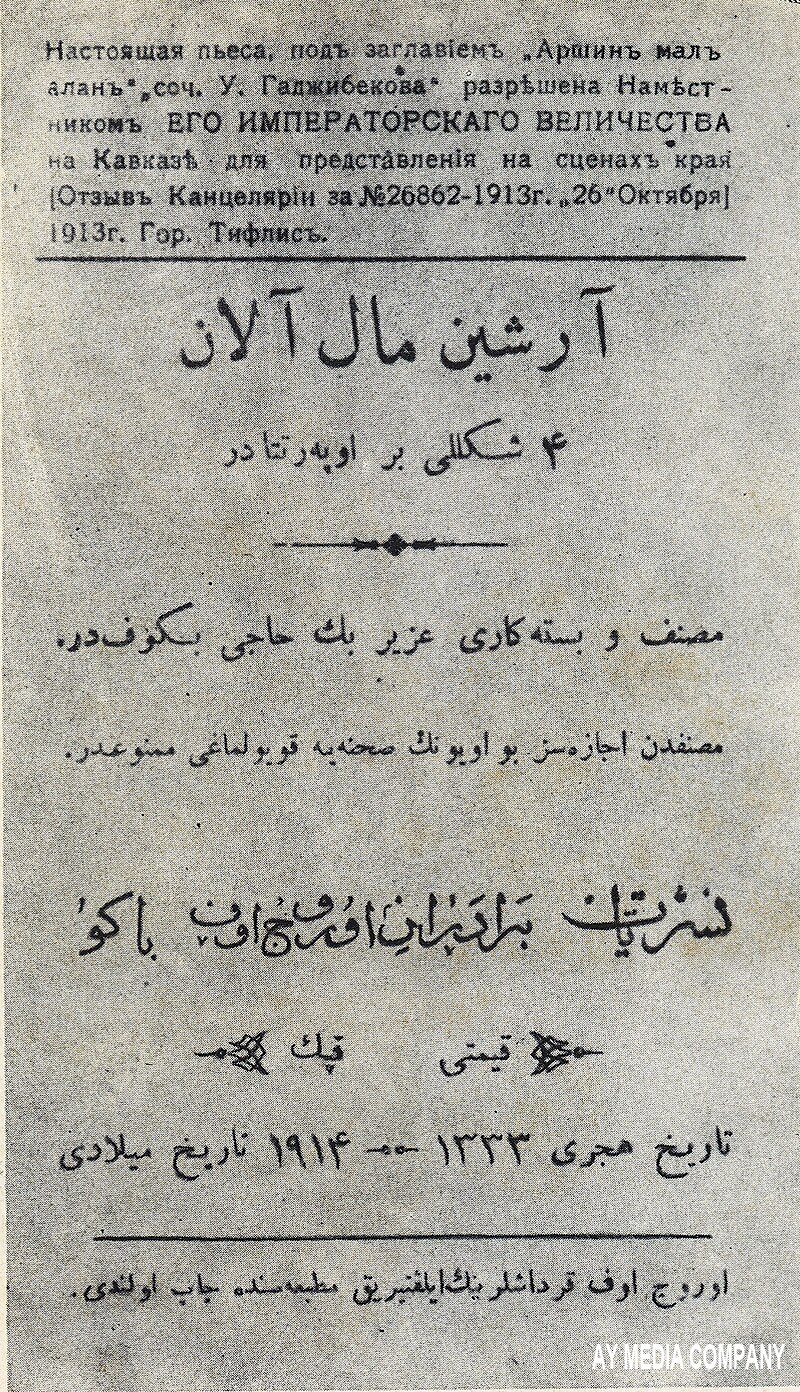 Настоящая пьеса, подъ заглавіемъ „Аршинъ малъ
аланъ“ „соч. У. Гаджибекова“ разрѣшена Намѣст-
никомъ ЕГО ИМПЕРАТОРСКАГО ВЕЛИЧЕСТВА
на Кавказѣ для представленія на сценахъ края
[Отзывъ Канцеляріи за №26862-1913г. „26“ Октября]
1913г. Гор. Тифлисъ.
آرشین مال آلان
۴ شکللی بر اوپه‌رتتا در
مصنف و بسته‌کاری عزیر بك حاجی بكوف‌در.
مصنفدن اجازه‌سز بو اویونك صحنه‌یه قویولماغی ممنوعدر.
نشریات برادران اوروج اوف باكو
قیمتی قپك
تاریخ هجری ۱۳۳۳ ۱۹۱۴ تاریخ میلادی
اوروج اوف قرداشلرینك ایلقتیریق مطبعه‌سنده چاپ اولندی.
AY MEDIA COMPANY